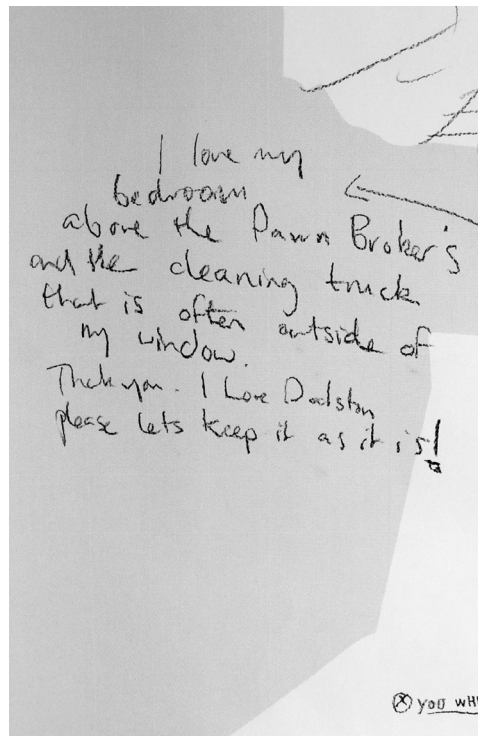 I love my
bedroom
above the Pawn Broker's
and the cleaning truck
that is often outside of
my window.
Thank you. I Love Dalston
please lets keep it as it is!
YOU WH